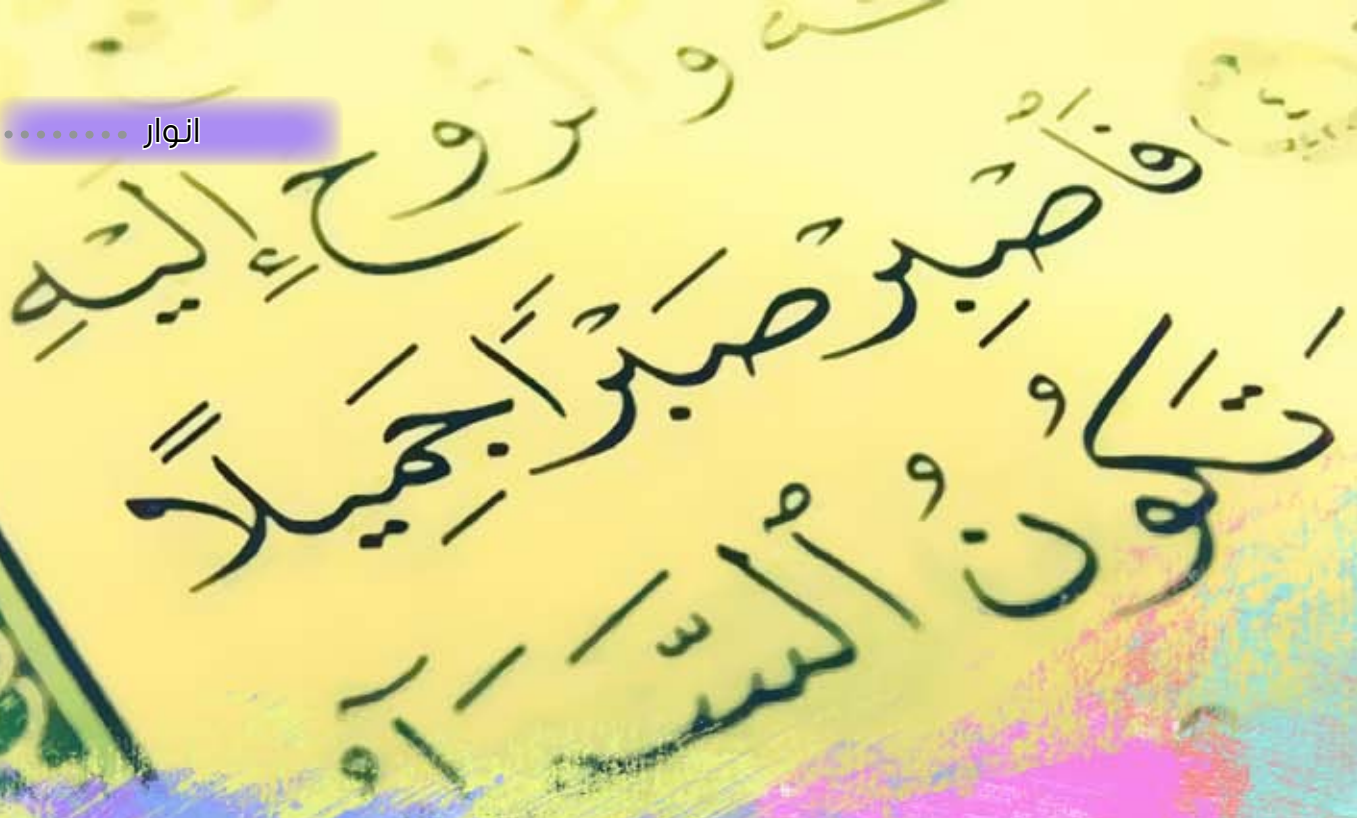 انوار
والروح إليه
فَٱصْبِرْ صَبْرًا جَمِيلًا
تَكُونُ ٱلسَّمَآ